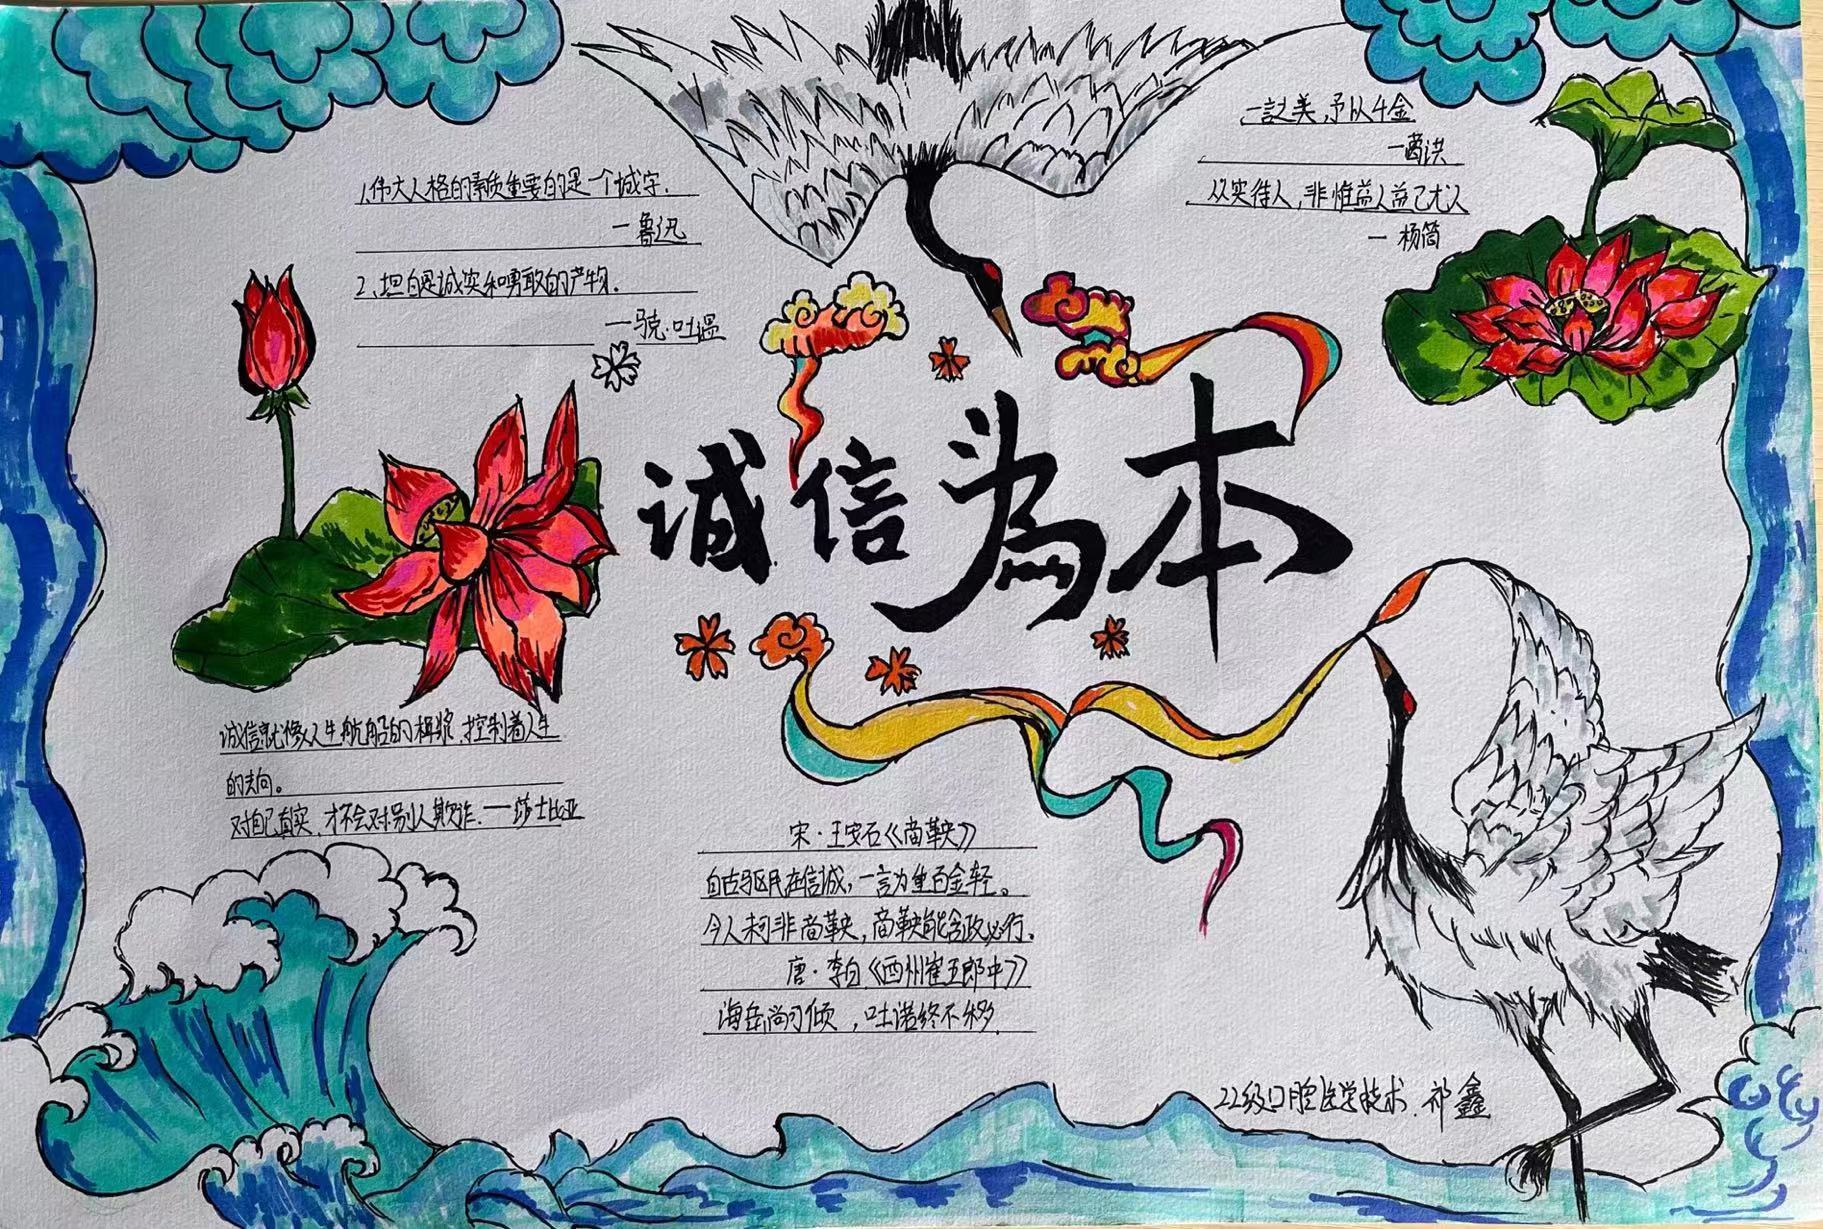 1.伟大人格的素质重要的是一个诚字.
—鲁迅
2、坦白是诚实和勇敢的产物.
—马克·吐温
一言之美,予以千金
—葛洪
以实待人,非惟益人益己尤大
—杨简
诚信为本
诚信就像人生航船的楫桨,控制着人生
的去向。
对自己真实,才不会对别人欺诈.——莎士比亚
宋·王安石《商鞅》
自古驱民在信诚,一言为重百金轻。
今人未可非商鞅,商鞅能令政必行.
唐·李白《西州崔五郎中》
海岳尚可倾,吐诺终不移.
22级口腔医学技术.祁鑫